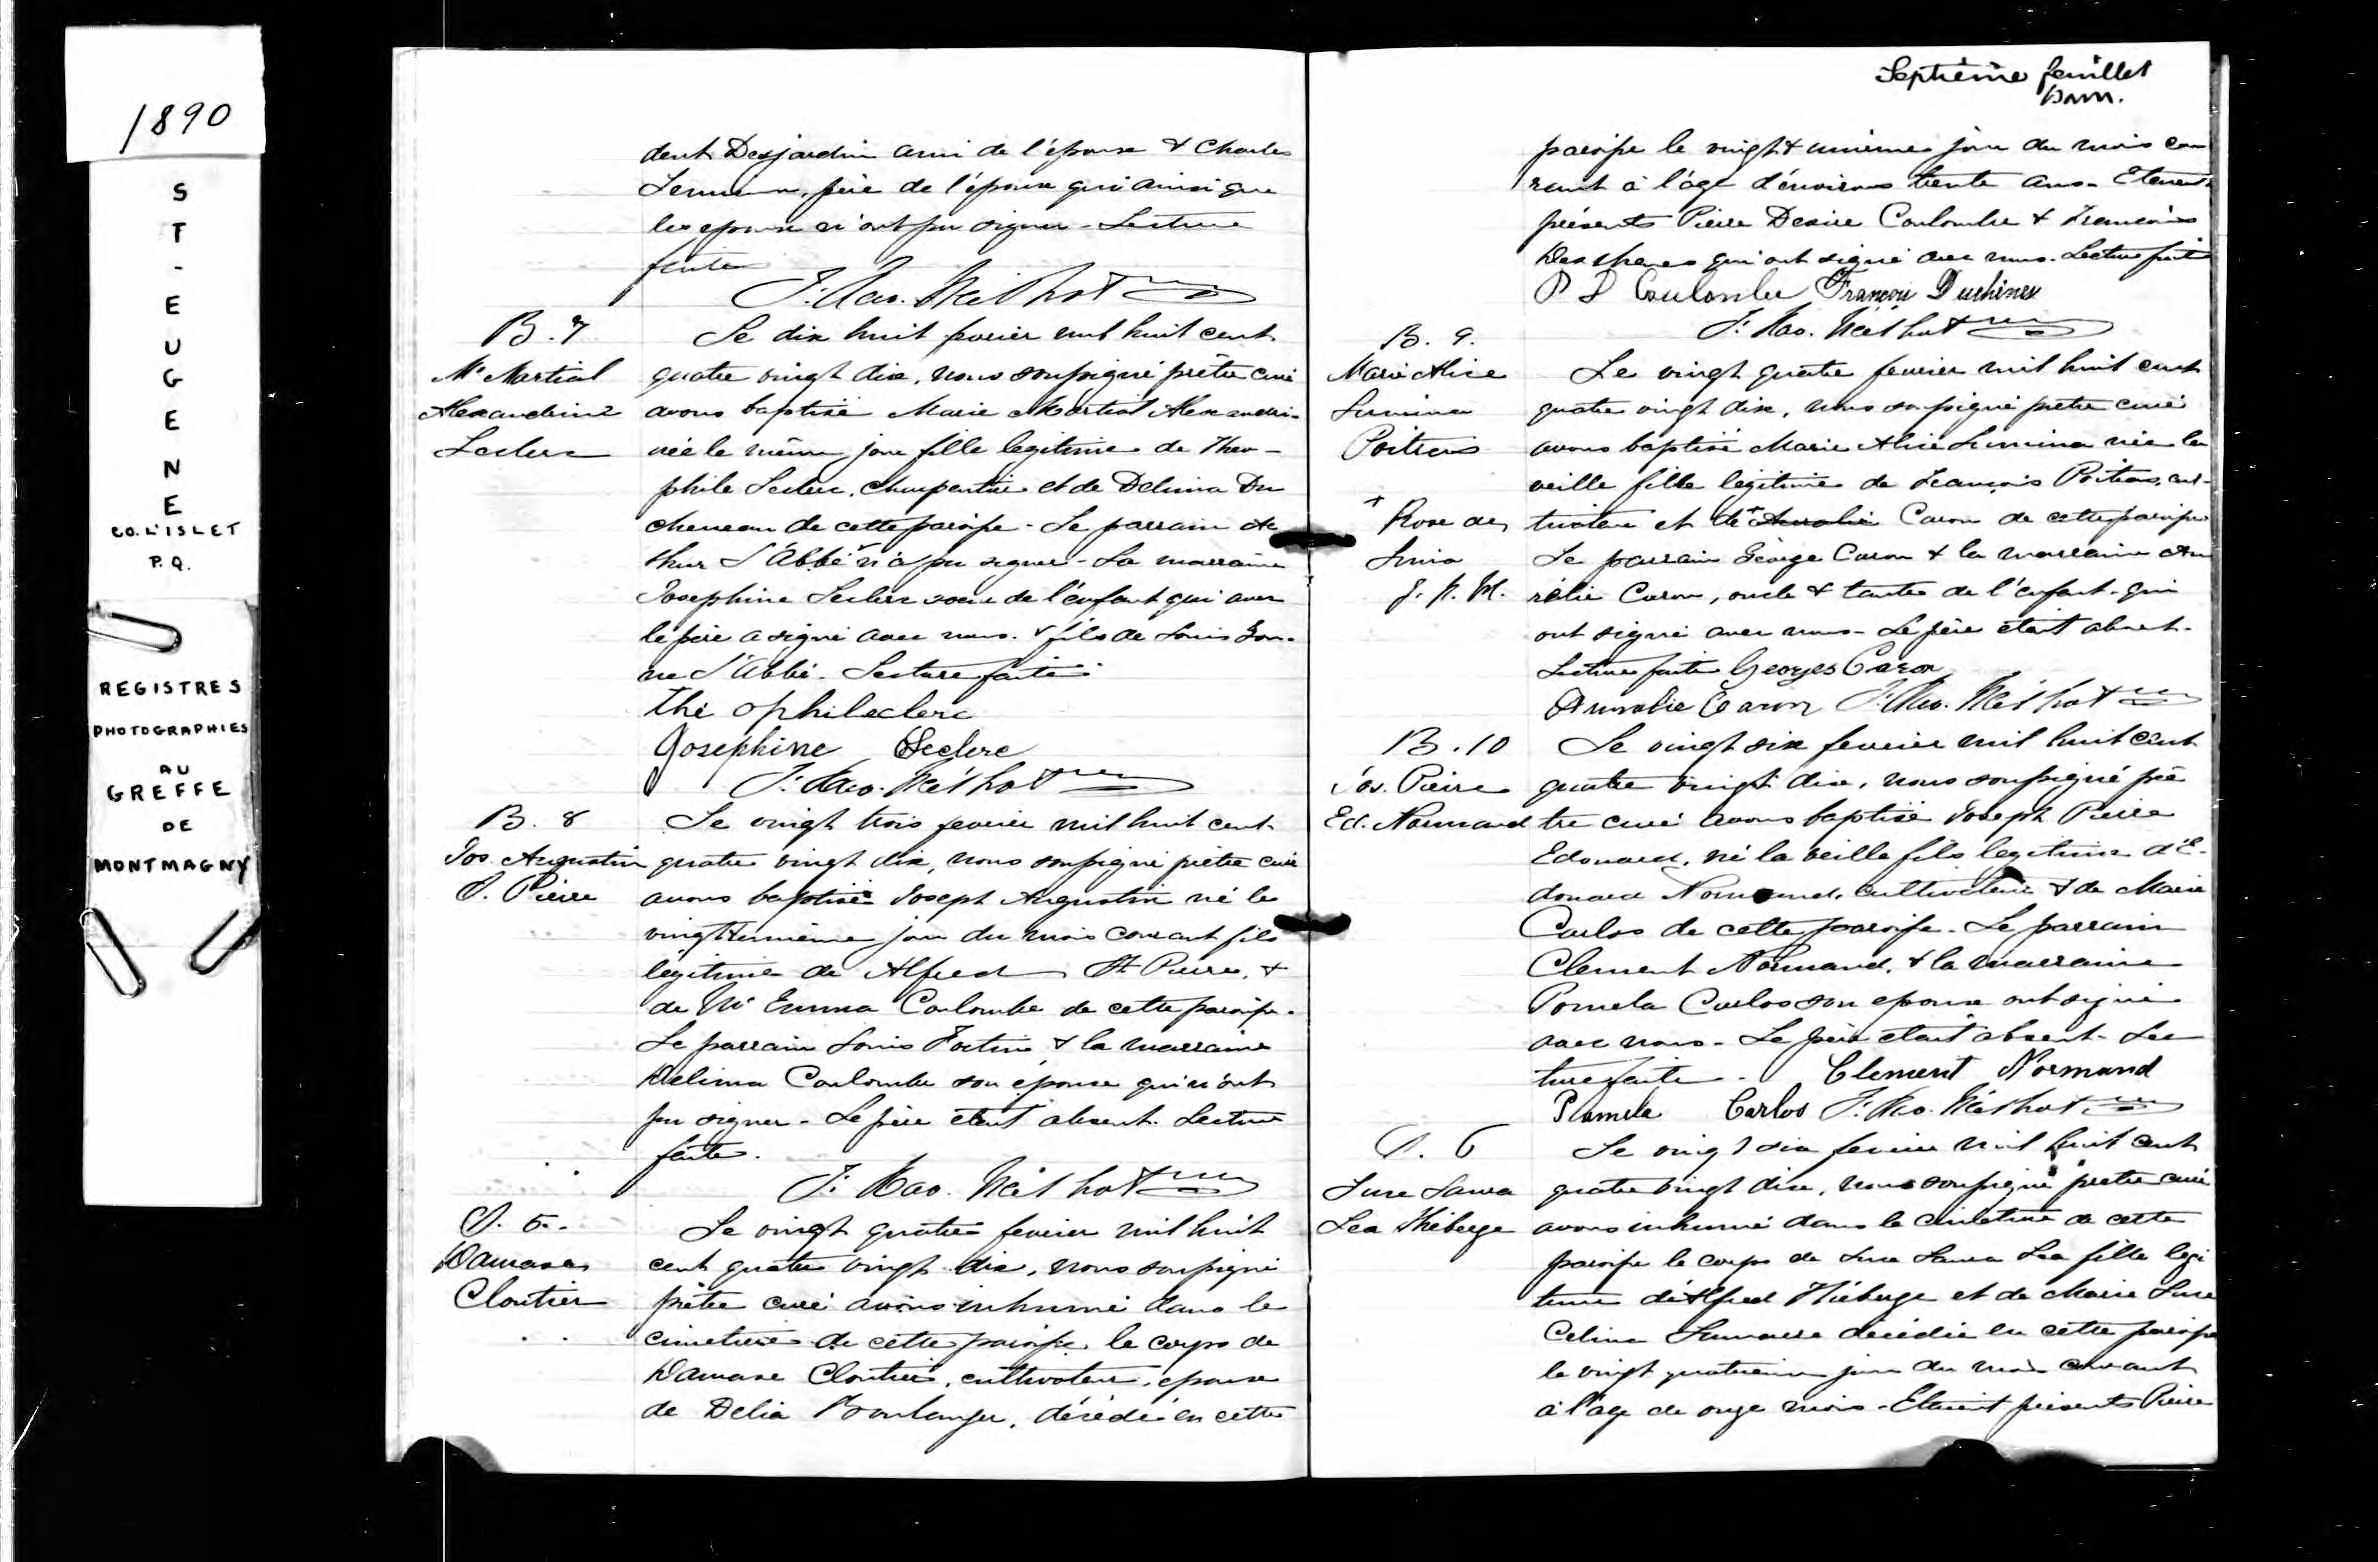 1890
ST-EUGENE
CO. L'ISLET
P.Q.
REGISTRES
PHOTOGRAPHIES
AU
GREFFE
DE
MONTMAGNY
dent Desjardin ami de l'épouse & Charles
père de l'épouse qui ainsi que
les epoux n'ont pu signer - Lecture
faite
F: Xao. Méthot
B. 7
Me Martial
Alexandrine
Leclerc
Le dix huit fevrier mil huit cent
quatre vingt dix, nous soussigné prêtre curé
avons baptisé Marie Martial Alexandri-
née le même jour fille legitime de Theo-
phile Leclerc, charpentier et de Delima Du
cheneau de cette paroisse - Le parrain Ar
thur L'Abbé + n'a pu signer - La marraine
Josephine Leclerc soeur de l'enfant qui avec
le père a signé avec nous. + fils de Louis
L'Abbé - Lecture faite
thé ophileclerc
Josephine Leclerc
F: Xao. Méthot
B. 8
Jos. Augustin
S. Pierre
Le vingt trois fevrier mil huit cent
quatre vingt dix, nous soussigné prêtre curé
avons baptisé Joseph Augustin né le
vingt & unième jour du mois courant fils
legitime de Alfred St Pierre, &
de Me Emma Coulombe de cette paroisse.
Le parrain Louis Fortin & la marraine
Delima Coulombe son épouse qui n'ont
pu signer - Le père etait absent. Lecture
faite.
F: Xao. Méthot
S. 5.
Damase
Cloutier
Le vingt quatre fevrier mil huit
cent quatre vingt dix, nous soussigné
prêtre curé avons inhumé dans le
cimetière de cette paroisse le corps de
Damase Cloutier, cultivateur, epoux
de Delia Boulanger, décédé en cette
Septième feuillet
paroisse le vingt & unième jour du mois cou
rant à l'âge d'environs trente ans - Etaient
présents Pierre Desire Coulombe & François
Deschenes qui ont signé avec nous. Lecture faite
P D Coulombe François Duchènes
F: Xao. Méthot
B. 9.
Marie Alice
Lumina
Poitras
+ Rose de
Lima
F. X. M.
Le vingt quatre fevrier mil huit cent
quatre vingt dix, nous soussigné prêtre curé
avons baptisé Marie Alice Lumina née la
veille fille légitime de François Poitras, cul-
tivateur et de + Aurelie Caron de cette paroisse
Le parrain George Caron & la marraine Au
rélie Caron, oncle & tante de l'enfant - qui
ont signé avec nous - Le père était absent -
Lecture faite Georges Caron
Aurelie Caron F: Xao. Méthot
B. 10
Jos. Pierre
Ed. Normand
Le vingt six fevrier mil huit cent
quatre vingt dix, nous soussigné prê
tre curé avons baptisé Joseph Pierre
Edouard, né la veille fils legitime d'E-
douard Normand, cultivateur & de Marie
Carlos de cette paroisse - Le parrain
Clement Normand, & la marraine
Pomela Carlos son epouse ont signé
avec nous - Le père etait absent - Lec
ture faite - Clement Normand
Pamela Carlos F: Xao. Méthot
S. 6
Luce Laura
Lea Théberge
Le vingt six fevrier mil huit cent
quatre vingt dix, nous soussigné prêtre curé
avons inhumé dans le cimetière de cette
paroisse le corps de Luce Laura Lea fille legi
time d'Alfred Théberge et de Marie Luce
Celina décédée en cette paroisse
le vingt quatrième jour du mois courant
à l'age de onze mois - Etaient présents Pierre